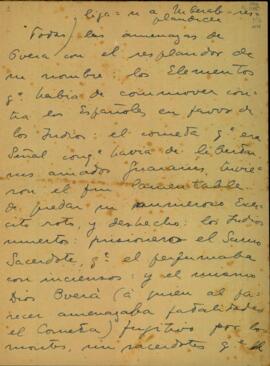 liga = u a Uberabá - res-
plandecer
"Todas las amenazas de
Overa con el resplandor de
su nombre: los Elementos
qe había de conmover con-
tra los Españoles en favor de
los Indios: el cometa qe era
Señal con qe havia de libertar
sus amados Guaranis, tuvie-
ron el fin lamentable
de quedar un numeroso Exer-
cito roto, y deshecho: los Indios
muertos: prisionero el Sumo
Sacerdote, qe el perfumaba
con inciensos: y el mismo
Dios Overá (à quien al pa-
recer amenazaba fatalidades
el Cometa) fugitivo por los
montes, sin sacerdotes qe